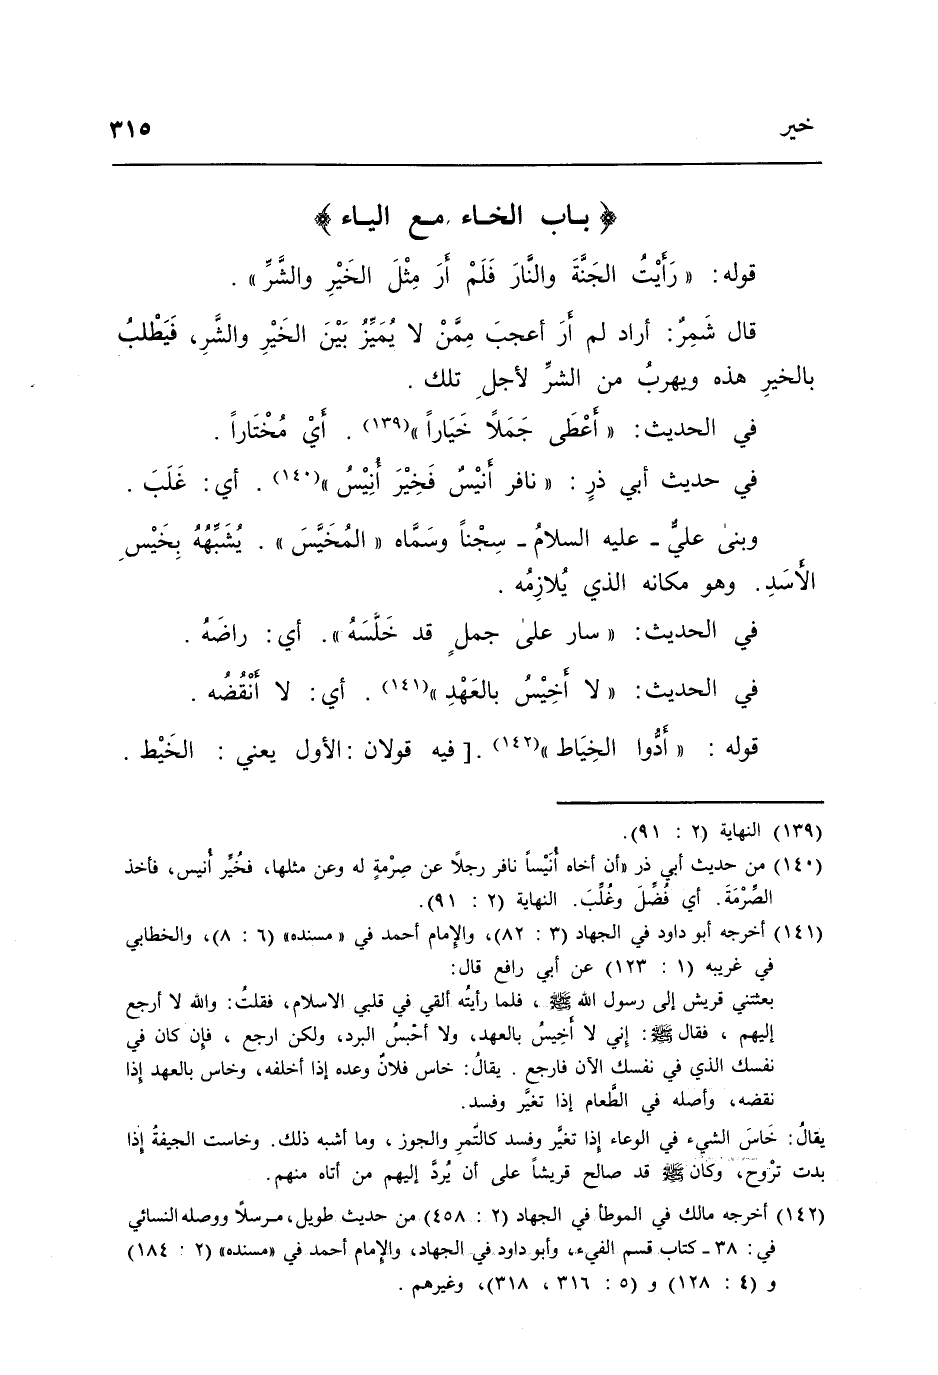 خير
٣١٥
﴿ باب الخاء مع الياء ﴾
قوله: « رَأَيْتُ الجَنَّةَ والنَّارَ فَلَمْ أَرَ مِثْلَ الخَيْرِ والشَّرِّ » .
قال شَمِرٌ: أراد لم أَرَ أعجبَ مِمَّنْ لا يُمَيِّزُ بَيْنَ الخَيْرِ والشَّرِ، فَيَطْلبُ
بالخيرِ هذه ويهربُ من الشرِّ لأجلِ تلك .
في الحديث: « أَعْطَى جَمَلًا خَيَاراً »(١٣٩) . أَيْ مُخْتَاراً .
في حديث أبي ذرٍ : « نافر أَنَيْسٌ فَخِيْرَ أُنِيْسُ »(١٤٠) . أي: غَلَبَ .
وبنىٰ عليٌّ ـ عليه السلامُ ـ سِجْناً وسَمَّاه « المُخَيَّسَ » . يُشَبِّهُهُ بِخَيْسِ
الأَسَدِ. وهو مكانه الذي يُلازِمُه .
في الحديث: « سار علىٰ جملٍ قد خَلَّسَهُ ». أي: راضَهُ .
في الحديث: « لا أَخِيْسُ بالعَهْدِ »(١٤١) . أي: لا أَنْقُضُه .
قوله : « أَدُّوا الخِيَاط »(١٤٢) .[ فيه قولان :الأول يعني : الخَيْط .
(١٣٩) النهاية (٢ : ٩١).
(١٤٠) من حديث أبي ذر «أن أخاه أُنَيْساً نافر رجلًا عن صِرْمةٍ له وعن مثلها، فخُيِّر أُنيس، فأخذ
الصِّرْمَةَ. أي فُضِّلَ وغُلِّبَ. النهاية (٢ : ٩١).
(١٤١) أخرجه أبو داود في الجهاد (٣ : ٨٢)، والإمام أحمد في « مسنده» (٦ : ٨)، والخطابي
في غريبه (١ : ١٢٣) عن أبي رافع قال:
بعثتني قريش إلى رسول الله ﷺ ، فلما رأيتُه ألقي في قلبي الاسلام، فقلتُ: والله لا أرجع
إليهم ، فقال ﷺ : إني لا أَخِيسُ بالعهد، ولا أحْبسُ البرد، ولكن ارجع ، فإن كان في
نفسك الذي في نفسك الآن فارجع . يقالُ: خاس فلانٌ وعده إذا أخلفه، وخاس بالعهد إذا
نقضه، وأصله في الطَّعام إذا تغيَّر وفسد.
يقالُ: خَاسَ الشيء في الوعاء إذا تغيَّر وفسد كالتَّمرِ والجوز ، وما أشبه ذلك. وخاست الجيفةُ إذا
بدت تَرْوح، وكَان ﷺ قد صالح قريشاً على أن يُردَّ إليهم من أتاه منهم.
(١٤٢) أخرجه مالك في الموطأ في الجهاد (٢ : ٤٥٨) من حديث طويل، مرسلًا ووصله النسائي
في: ٣٨ ـ كتاب قسم الفيء، وأبو داود في الجهاد، والإمام أحمد في «مسنده» (٢ : ١٨٤)
و (٤ : ١٢٨) و (٥ : ٣١٦ ، ٣١٨)، وغيرهم .